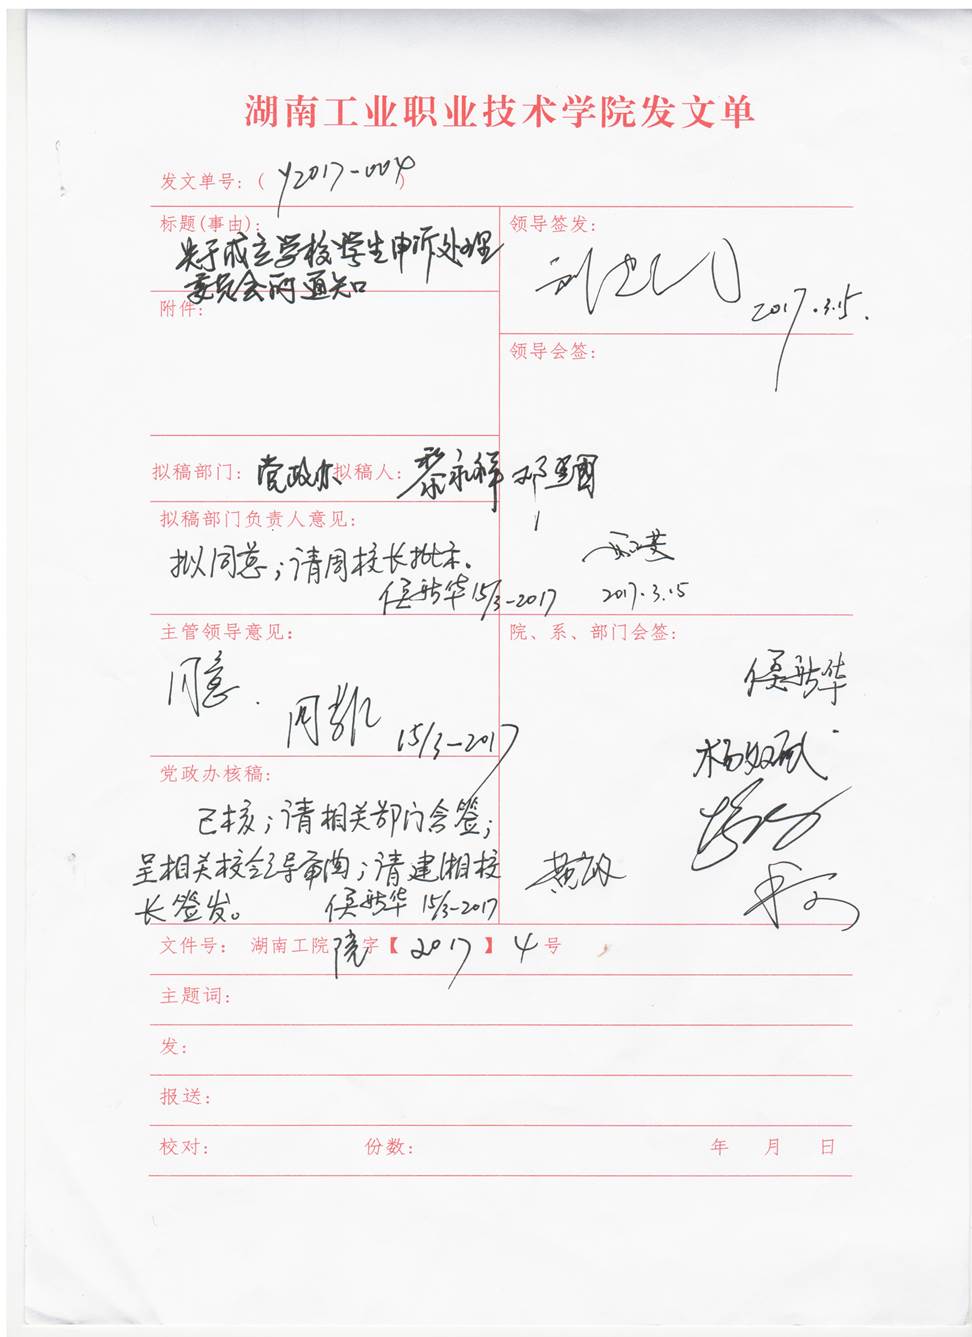 湖南工业职业技术学院发文单
发文单号:( y2017-004 )
标题(事由):
关于成立学校学生申诉处理
委员会的通知
领导签发:
2017.3.15.
附件:
领导会签:
拟稿部门: 党政办 拟稿人: 黎永祥 邓
拟稿部门负责人意见:
拟同意;请周校长批示。
侯新华 15/3-2017
2017.3.15
主管领导意见:
同意.
周 15/3-2017
院、系、部门会签:
侯新华
杨
黄
党政办核稿:
已核;请相关部门会签;
呈相关校领导审阅;请建湘校
长签发。 侯新华 15/3-2017
文件号: 湖南工院 院 字【 2017 】 4 号
主题词:
发:
报送:
校对: 份数: 年 月 日